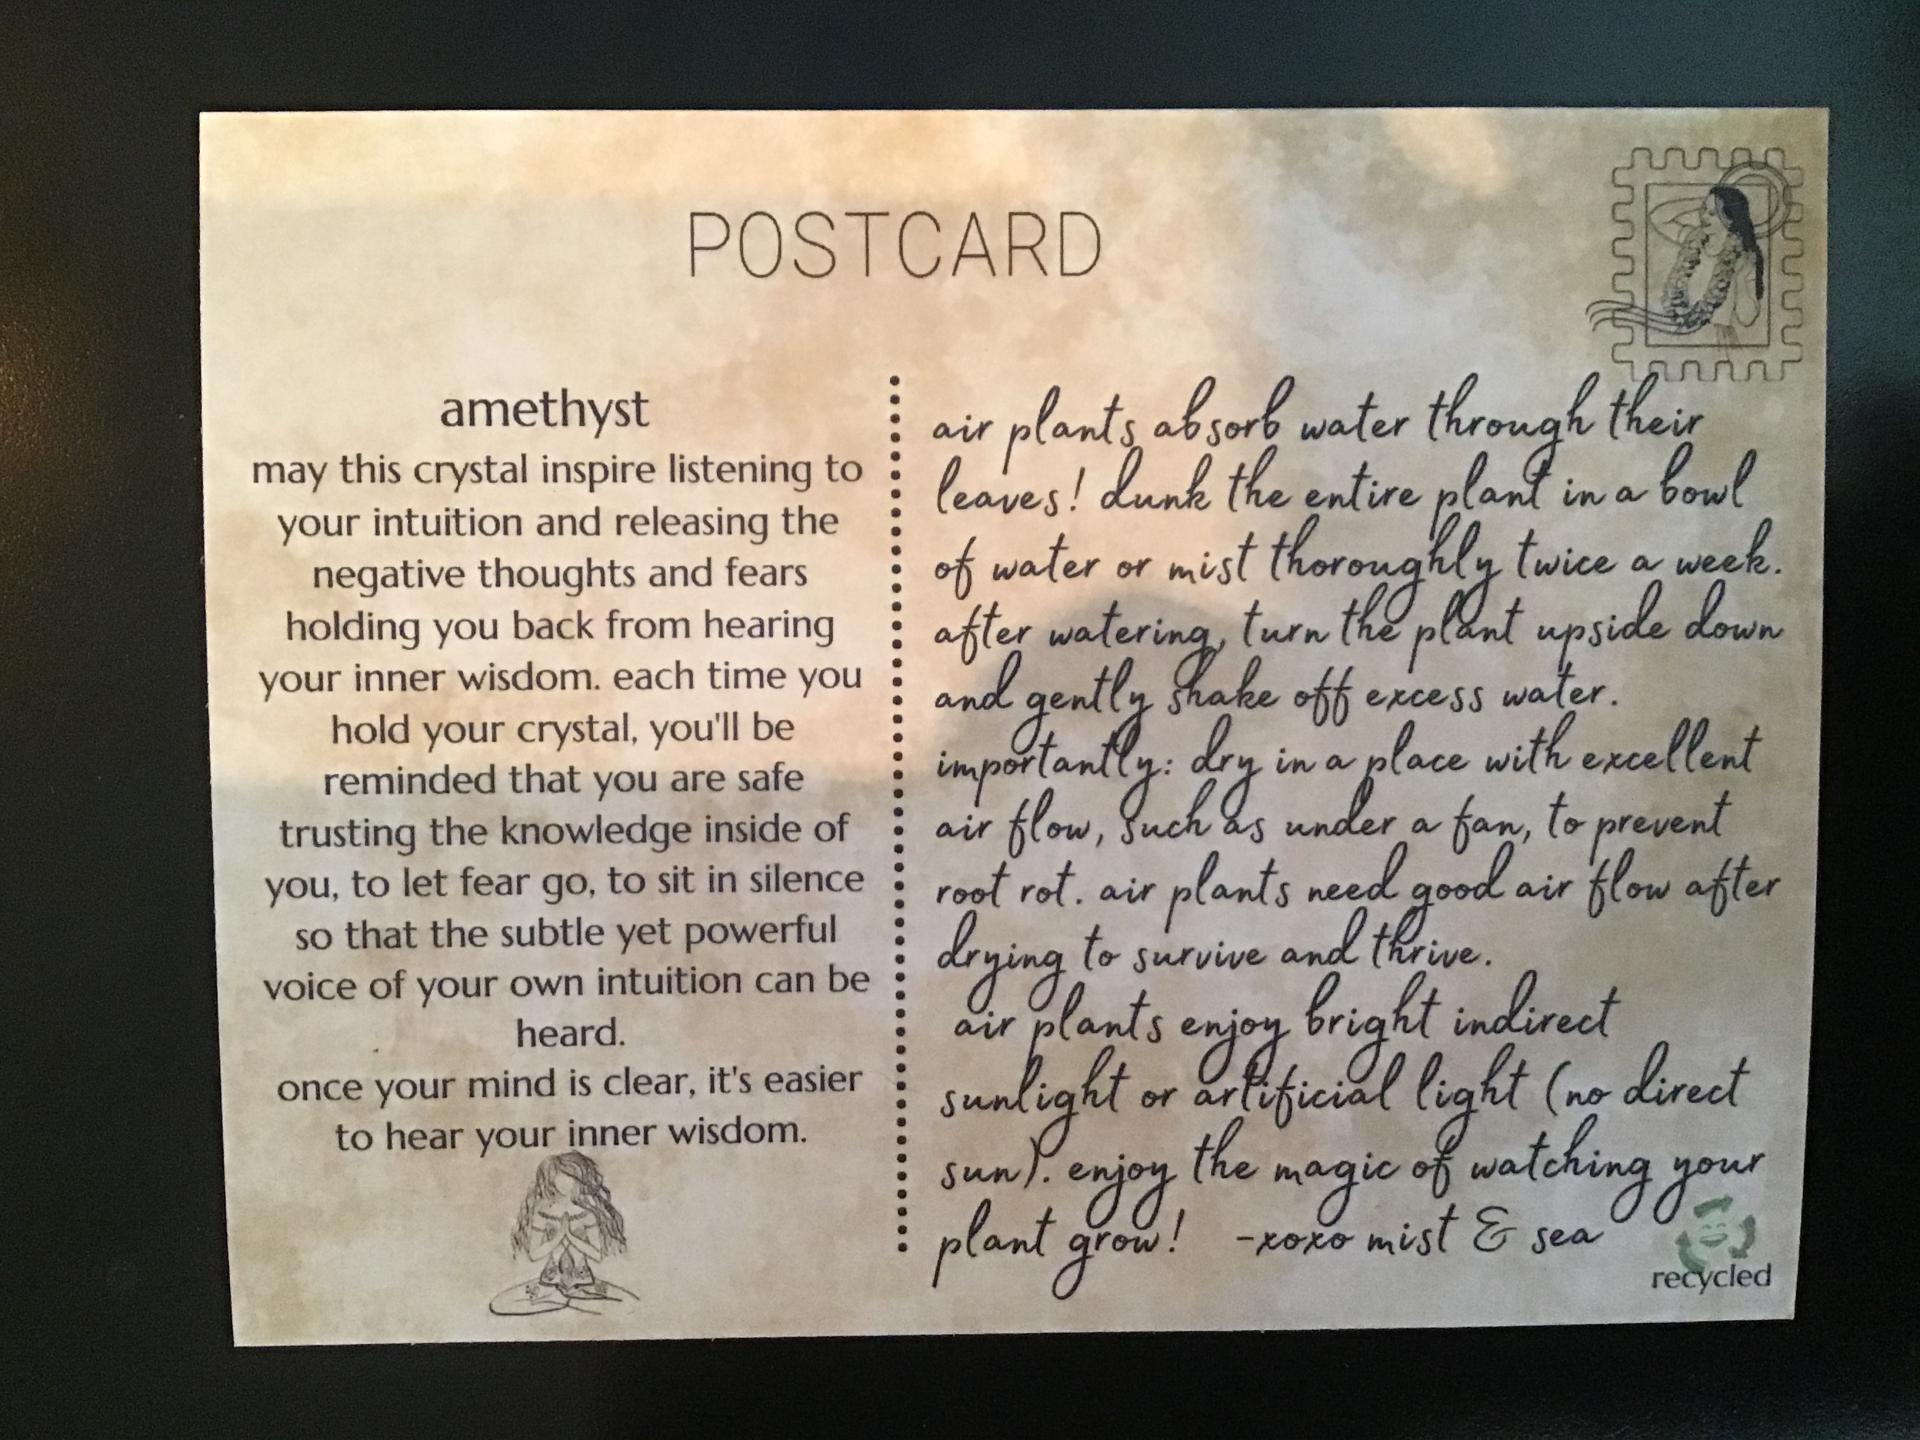 POSTCARD
amethyst
may this crystal inspire listening to
your intuition and releasing the
negative thoughts and fears
holding you back from hearing
your inner wisdom. each time you
hold your crystal, you'll be
reminded that you are safe
trusting the knowledge inside of
you, to let fear go, to sit in silence
so that the subtle yet powerful
voice of your own intuition can be
heard.
once your mind is clear, it's easier
to hear your inner wisdom.
air plants absorb water through their
leaves! dunk the entire plant in a bowl
of water or mist thoroughly twice a week.
after watering, turn the plant upside down
and gently shake off excess water.
importantly: dry in a place with excellent
air flow, such as under a fan, to prevent
root rot. air plants need good air flow after
drying to survive and thrive.
air plants enjoy bright indirect
sunlight or artificial light (no direct
sun). enjoy the magic of watching your
plant grow! -xoxo mist & sea
recycled